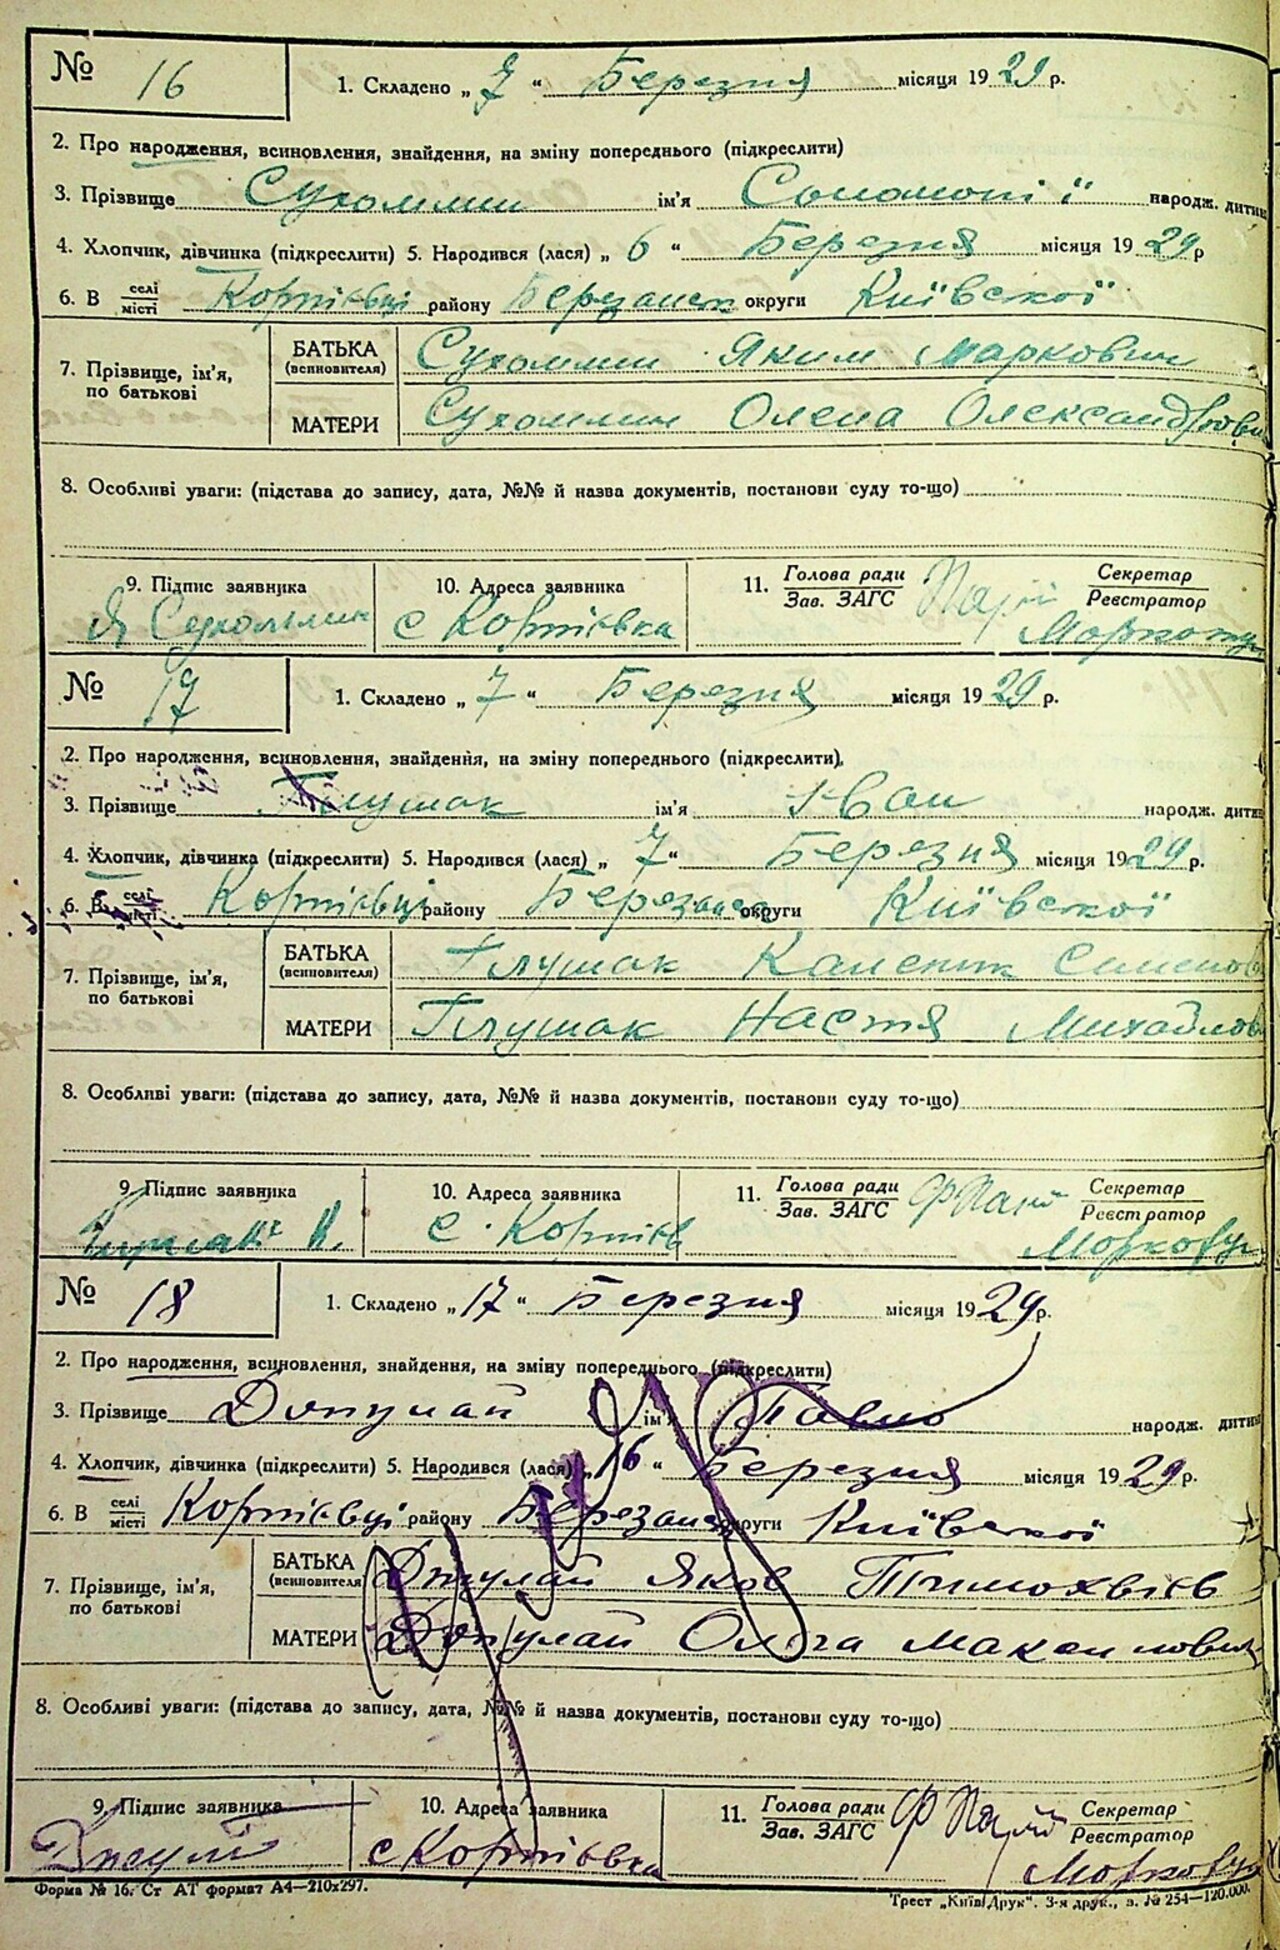 № 16 1. Складено „ 7 “ Березня місяця 1929 р.
2. Про народження, всиновлення, знайдення, на зміну попереднього (підкреслити)
3. Прізвище Сухомлин ім'я Соломоніï народж. дитини
4. Хлопчик, дівчинка (підкреслити) 5. Народився (лася) „ 6 “ Березня місяця 1929 р
6. В селі/місті Корніївці району Березанськ округи Київської
7. Прізвище, ім'я, по батькові БАТЬКА (всиновителя) Сухомлин Яким Маркович
МАТЕРИ Сухомлин Олена Олександрови
8. Особливі уваги: (підстава до запису, дата, №№ й назва документів, постанови суду то-що)
9. Підпис заявника 10. Адреса заявника 11. Голова ради/Зав. ЗАГС Секретар/Реєстратор
Я Сухомлин с Корніївка
№ 17 1. Складено „ 7 “ Березня місяця 1929 р.
2. Про народження, всиновлення, знайдення, на зміну попереднього (підкреслити)
3. Прізвище Глушак ім'я Іван народж. дитини
4. Хлопчик, дівчинка (підкреслити) 5. Народився (лася) „ 7 “ Березня місяця 1929 р.
6. В селі/місті Корніївці району Березанськ округи Київської
7. Прізвище, ім'я, по батькові БАТЬКА (всиновителя) Глушак Каленик Семенов
МАТЕРИ Глушак Настя Михайлов
8. Особливі уваги: (підстава до запису, дата, №№ й назва документів, постанови суду то-що)
9. Підпис заявника 10. Адреса заявника 11. Голова ради/Зав. ЗАГС Секретар/Реєстратор
с. Корніїв
№ 18 1. Складено „ 17 “ Березня місяця 1929 р.
2. Про народження, всиновлення, знайдення, на зміну попереднього (підкреслити)
3. Прізвище ім'я Павло народж. дитини
4. Хлопчик, дівчинка (підкреслити) 5. Народився (лася) „ 16 “ Березня місяця 1929 р.
6. В селі/місті Корніївці району Березанськ округи Київської
7. Прізвище, ім'я, по батькові БАТЬКА (всиновителя) Яков Тимохвіїв
МАТЕРИ Ольга
8. Особливі уваги: (підстава до запису, дата, №№ й назва документів, постанови суду то-що)
9. Підпис заявника 10. Адреса заявника 11. Голова ради/Зав. ЗАГС Секретар/Реєстратор
с Корніївка
Форма № 16. Ст АТ формат А4—210х297. Трест „Київ Друк“. 3-я друк., з. № 254—120.000.